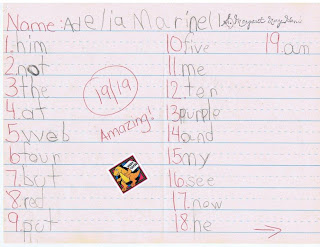 Name: Adelia
1. him
2. not
3. the
4. at
5. web
6. four
7. but
8. red
9. put
19/19
Amazing!
10. five
11. me
12. ten
13. purple
14. and
15. my
16. see
17. now
18. he
19. am